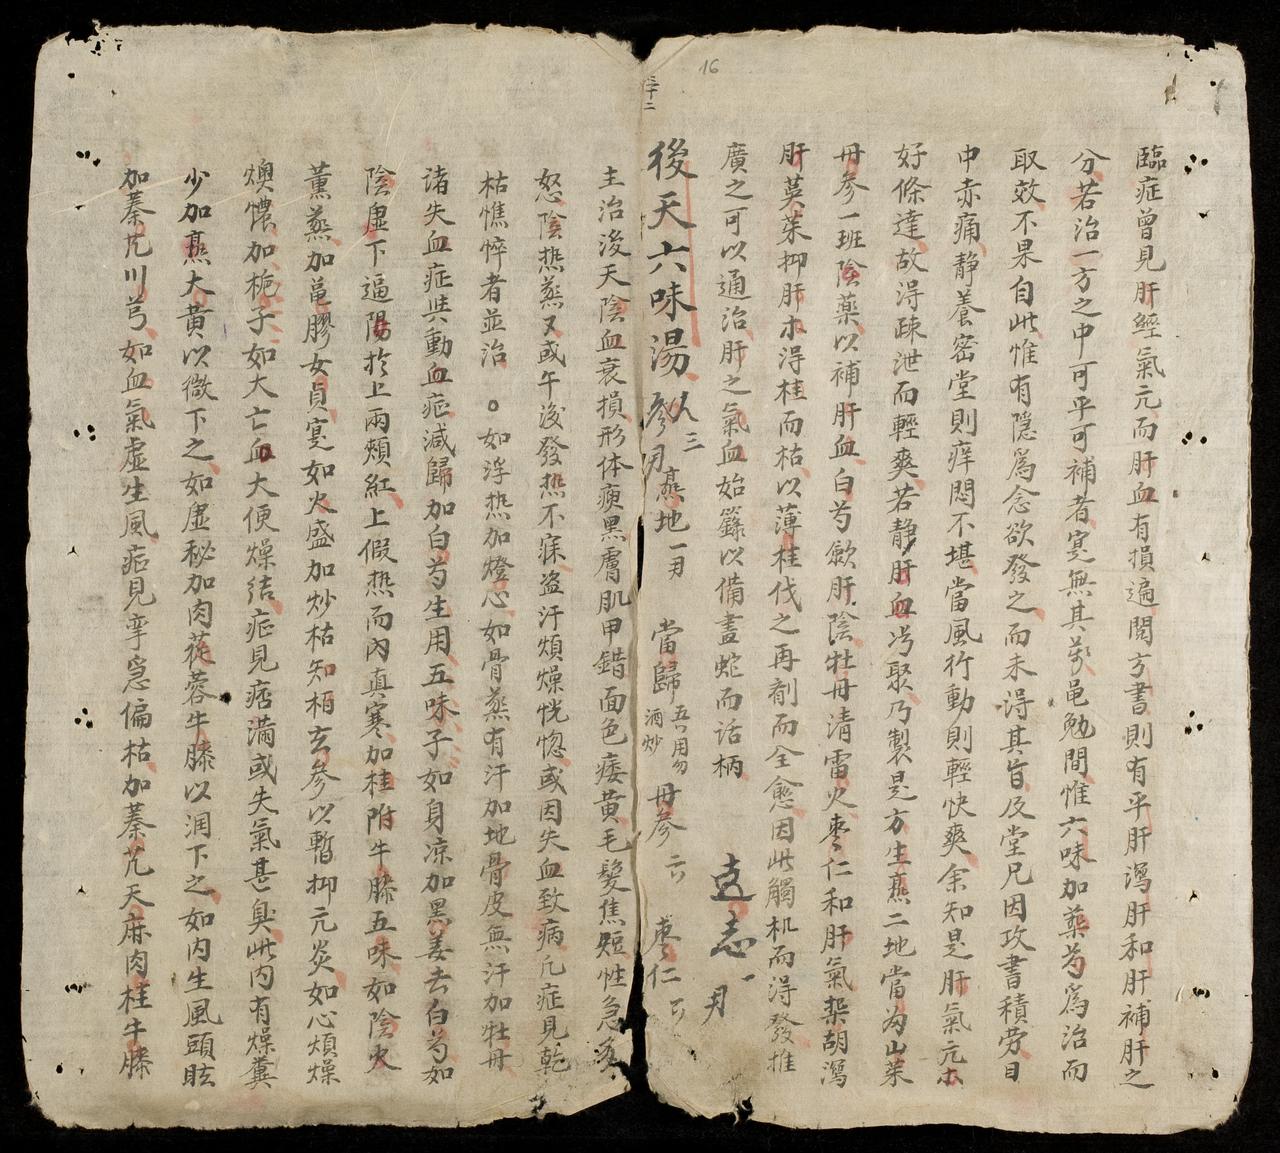 16
三十二
臨症曾見肝經氣亢而肝血有損遍閱方書則有平肝瀉肝和肝補肝之
分若治一方之中可平可補者寔無其萃黽勉間惟六味加藥芍為治而
取效不果自此惟有隱為念欲發之而未得其旨及堂兄因攻書積勞目
中赤痛靜養密堂則痒悶不堪當風行動則輕快爽余知是肝氣亢木
好條達故得疎泄而輕爽若靜肝血冯聚乃製是方生熹二地當为山茱
丹參一班陰藥以補肝血白芍歛肝陰牡丹清雷火枣仁和肝氣柴胡瀉
肝萸茱抑肝木得桂而枯以薄桂伐之再劑而全愈因此觸机而得發推
廣之可以通治肝之氣血始籙以備畫蛇而話柄
後天六味湯 人參三 熹地一両 當歸五勺用勿酒炒 丹參六 枣仁 远志一
主治後天陰血衰損形体瘐黑膚肌甲錯面色痿黄毛髮焦短性急多
怒陰热蒸又或午後發热不寐盗汗煩燥恍惚或因失血致病凡症見乾
枯憔悴者並治 ○如浮热加燈心如骨蒸有汗加地骨皮無汗加牡丹
诸失血症與動血症減歸加白芍生用五味子如身凉加黑姜去白芍如
陰虚下逼陽於上兩頰紅上假热而内真寒加桂附牛膝五味如陰火
薰蒸加黽膠女貞寔如火盛加炒枯知栢玄參以暫抑亢炎如心煩燥
燠憹加栀子如大亡血大便燥结症見痞滿或失氣甚臭此内有燥糞
少加熹大黄以微下之如虚秘加肉苁蓉牛膝以润下之如内生風頭眩
加蓁艽川芎如血氣虚生風症見孪急偏枯加蓁艽天麻肉桂牛膝